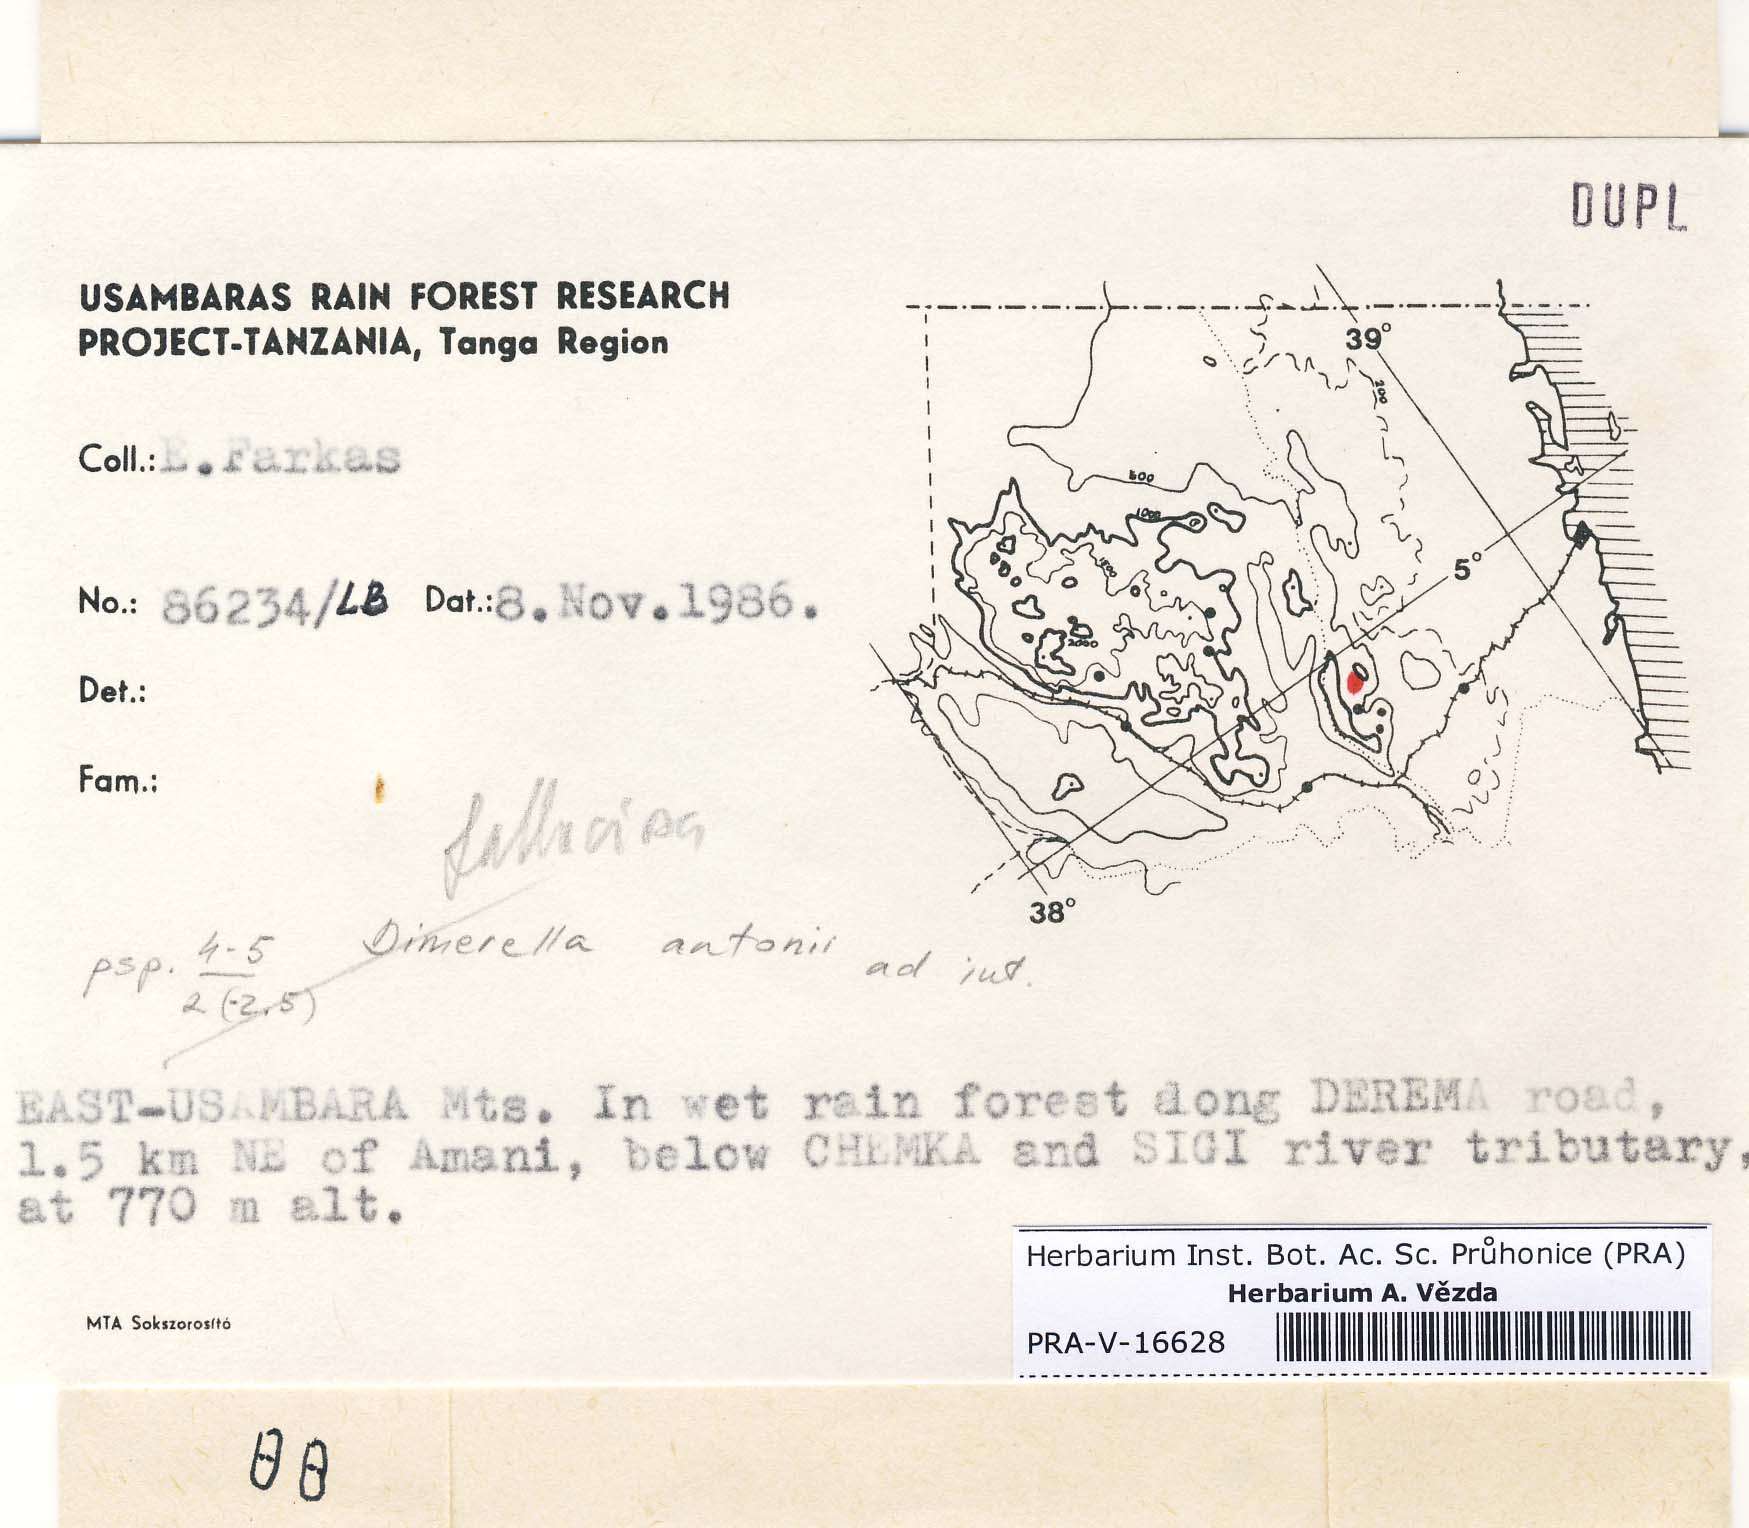 DUPL
USAMBARAS RAIN FOREST RESEARCH
PROJECT-TANZANIA, Tanga Region
Coll.: E.Farkas
No.: 86234/LB Dat.: 8.Nov.1986.
Det.:
Fam.:
39°
200
600
1000
5°
2000
38°
fallaciosa
Dimerella antonii ad int.
psp. 4-5
2 (-2.5)
EAST-USAMBARA Mts. In wet rain forest along DEREMA road,
1.5 km NE of Amani, below CHEMKA and SIGI river tributary,
at 770 m alt.
Herbarium Inst. Bot. Ac. Sc. Průhonice (PRA)
Herbarium A. Vězda
PRA-V-16628
MTA Sokszorosító